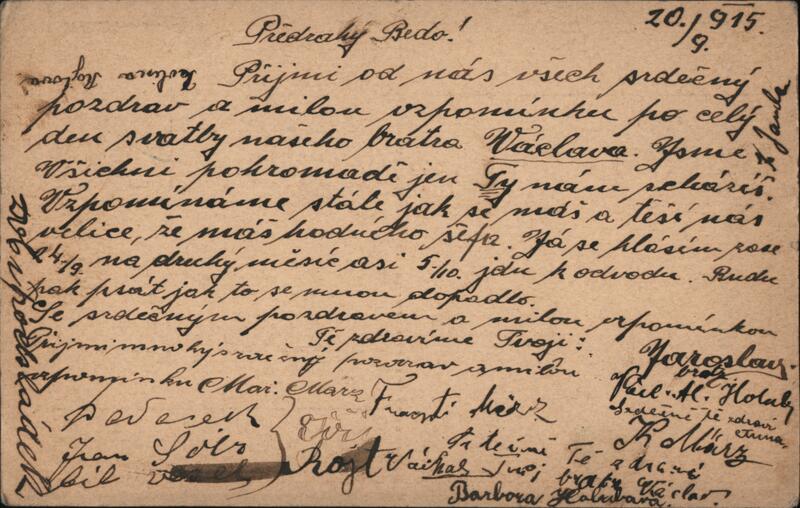 20./9. 1915.
Předrahý Bedo!
Přijmi od nás všech srdečný
pozdrav a milou vzpomínku po celý
den svatby našeho bratra Václava. Jsme
Všichni pohromadě jen Ty nám scházíš.
Vzpomínáme stále jak se máš a těší nás
velice, že máš hodného šéfa. Já se hlásím zase
24/9. na druhý měsíc asi 5/10. jdu k odvodu. Budu
pak psát jak to se mnou dopadlo.
Se srdečným pozdravem a milou vzpomínkou
Tě zdravíme Tvoji:
Přijmi mnohý srdečný pozdrav a milou
vzpomínku Mar. März
Jaroslav.
bratr
Al. Holub
Srdečně tě zdraví
K März
Frant. März
Rojt
Tě zdraví
bratr Václav.
Barbora Holubová.